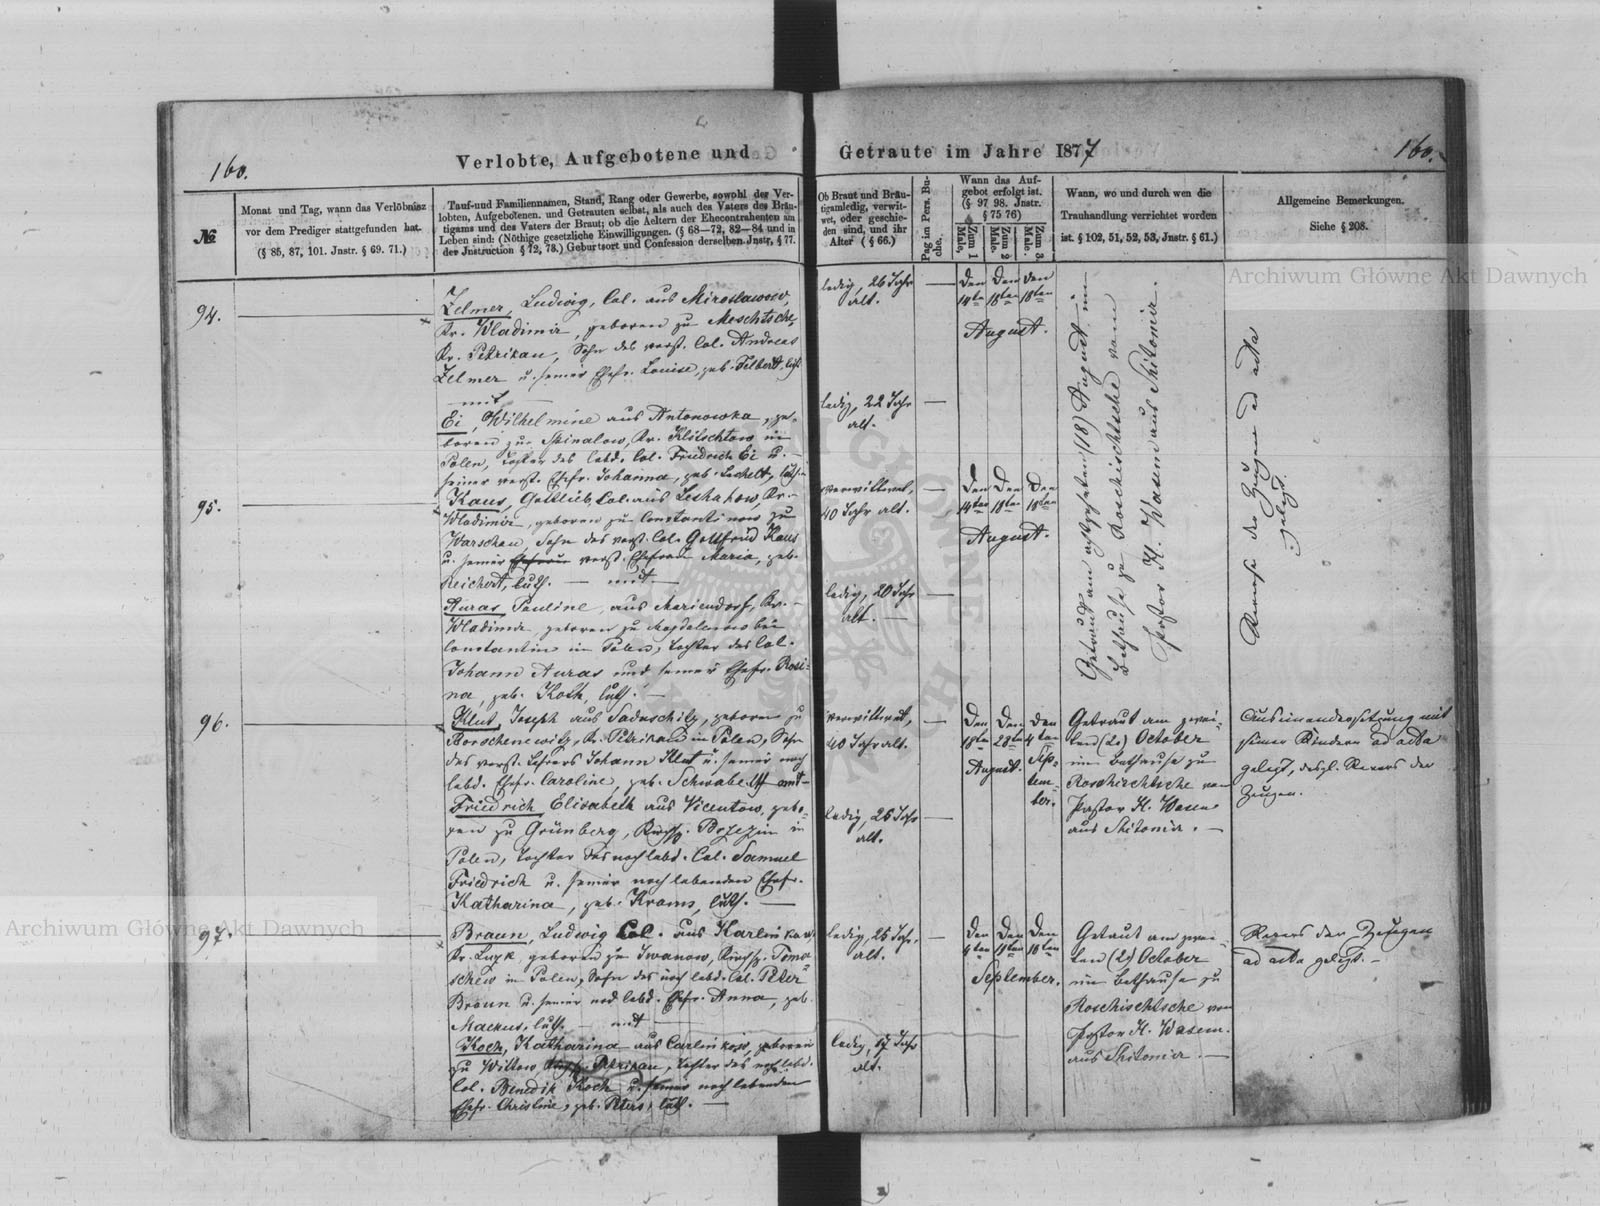 160.
Verlobte, Aufgebotene und
№
Monat und Tag, wann das Verlöbniss
vor dem Prediger stattgefunden hat.
(§ 85, 87, 101. Jnstr. § 69. 71.)
Tauf-und Familiennamen, Stand, Rang oder Gewerbe, sowohl der Ver-
lobten, Aufgebotenen. und Getrauten selbst, als auch des Vaters des Bräu-
tigams und des Vaters der Braut; ob die Aeltern der Ehecontrahenten am
Leben sind: (Nöthige gesetzliche Einwilligungen. (§ 68—72, 82—84 und in
der Jnstruction § 72, 73.) Geburtsort und Confession derselben. Jnstr. § 77.
94.
Zelmer, Ludwig, Col. aus Miroslawow,
Kr. Wladimir, geboren zu Moschtsche,
Kr. Petrikau, Sohn des verst. Col. Andreas
Zelmer u. seiner Ehefr. Louise, geb. Selbert, luth.
— mit —
Ei, Wilhelmine aus Antonowka, ge-
boren zu Spinalow, Kr. Klötschtow in
Polen, Tochter des lebd. Col. Friedrich Ei u.
seiner verst. Ehefr. Johanna, geb. Lechelt, luth.
95.
Kaus, Gottlieb, Col. aus Leshahow, Kr.
Wladimir, geboren zu Constantinow zu
Warschau, Sohn des verst. Col. Gottfried Kaus
u. seiner verst. Ehefrau Maria, geb.
Reichert, luth. — mit —
Auras Pauline, aus Mariendorf, Kr.
Wladimir, geboren zu Magdalenow bei
Constantin in Polen, Tochter des Col.
Johann Auras und seiner Ehefr. Rosi-
na, geb. Koth, luth. —
96.
Klut, Joseph aus Sadaschitz, geboren zu
Borschenewitz, Kr. Petrikau in Polen, Sohn
des verst. Lehrers Johann Klut u. seiner noch
lebd. Ehefr. Caroline, geb. Schwabe, mit
Friedrich Elisabeth aus Vicentow, gebo-
ren zu Grünberg, Kirchsp. Brzezin in
Polen, Tochter des noch lebd. Col. Samuel
Friedrich u. seiner noch lebenden Ehefr.
Katharina, geb. Kroms, luth. —
97.
Braun, Ludwig Col. aus Karlinkow,
Kr. Luzk, geboren zu Iwanow, Kirchsp. Toma-
schew in Polen, Sohn des noch lebd. Col. Peter
Braun u. seiner noch lebd. Ehefr. Anna, geb.
Mackus, luth. — mit —
Koch, Katharina aus Carlinkow, geboren
zu Wittow, Petrikau, Tochter des noch lebd.
Col. Benedik Koch u. seiner noch lebenden
Ehefr. Christine, geb. Peters, luth. —
Getraute im Jahre 1877
160.
Ob Braut und Bräu-
tigam ledig, verwit-
wet, oder geschie-
den sind, und ihr
Alter (§ 66.)
Pag im Pers. Bu-
che.
Wann das Auf-
gebot erfolgt ist.
(§ 97 98. Jnstr.
§ 75 76)
Zum 1 Male.
Zum 2 Male.
Zum 3 Male.
Wann, wo und durch wen die
Trauhandlung verrichtet worden
ist. § 102, 51, 52, 53, Jnstr. § 61.)
Allgemeine Bemerkungen.
Siehe § 208.
ledig, 26 Jahr
alt.
Den Den den
14ten 18ten 18ten
August.
ledig, 22 Jahr
alt.
Getraut am achtzehnten (18) August im
Bethause zu Roschischtsche vom
Pastor H. Wasem aus Shitomir.
Revers der Zeugen ad acta
gelegt.
verwittwet,
40 Jahr alt.
Den Den Den
14ten 18ten 18ten
August.
ledig, 20 Jahr
alt. —
verwittwet,
40 Jahr alt.
Den Den den
18ten 28ten 4ten
August. Sep-
tem-
ber.
Getraut am zwei-
ten (2) October
im Bethause zu
Roschischtsche vom
Pastor H. Wasem
aus Shitomir. —
Auseinandersetzung mit
seinen Kindern ad acta
gelegt, desgl. Revers der
Zeugen.
ledig, 25 Jahr
alt.
ledig, 25 Jahr,
alt.
Den Den Den
4ten 11ten 18ten
September.
Getraut am zwei-
ten (2) October
im Bethause zu
Roschischtsche vom
Pastor H. Wasem
aus Shitomir. —
Revers der Zeugen
ad acta gelegt. —
ledig, 17 Jahr
alt.
Archiwum Główne Akt Dawnych
Archiwum Główne Akt Dawnych